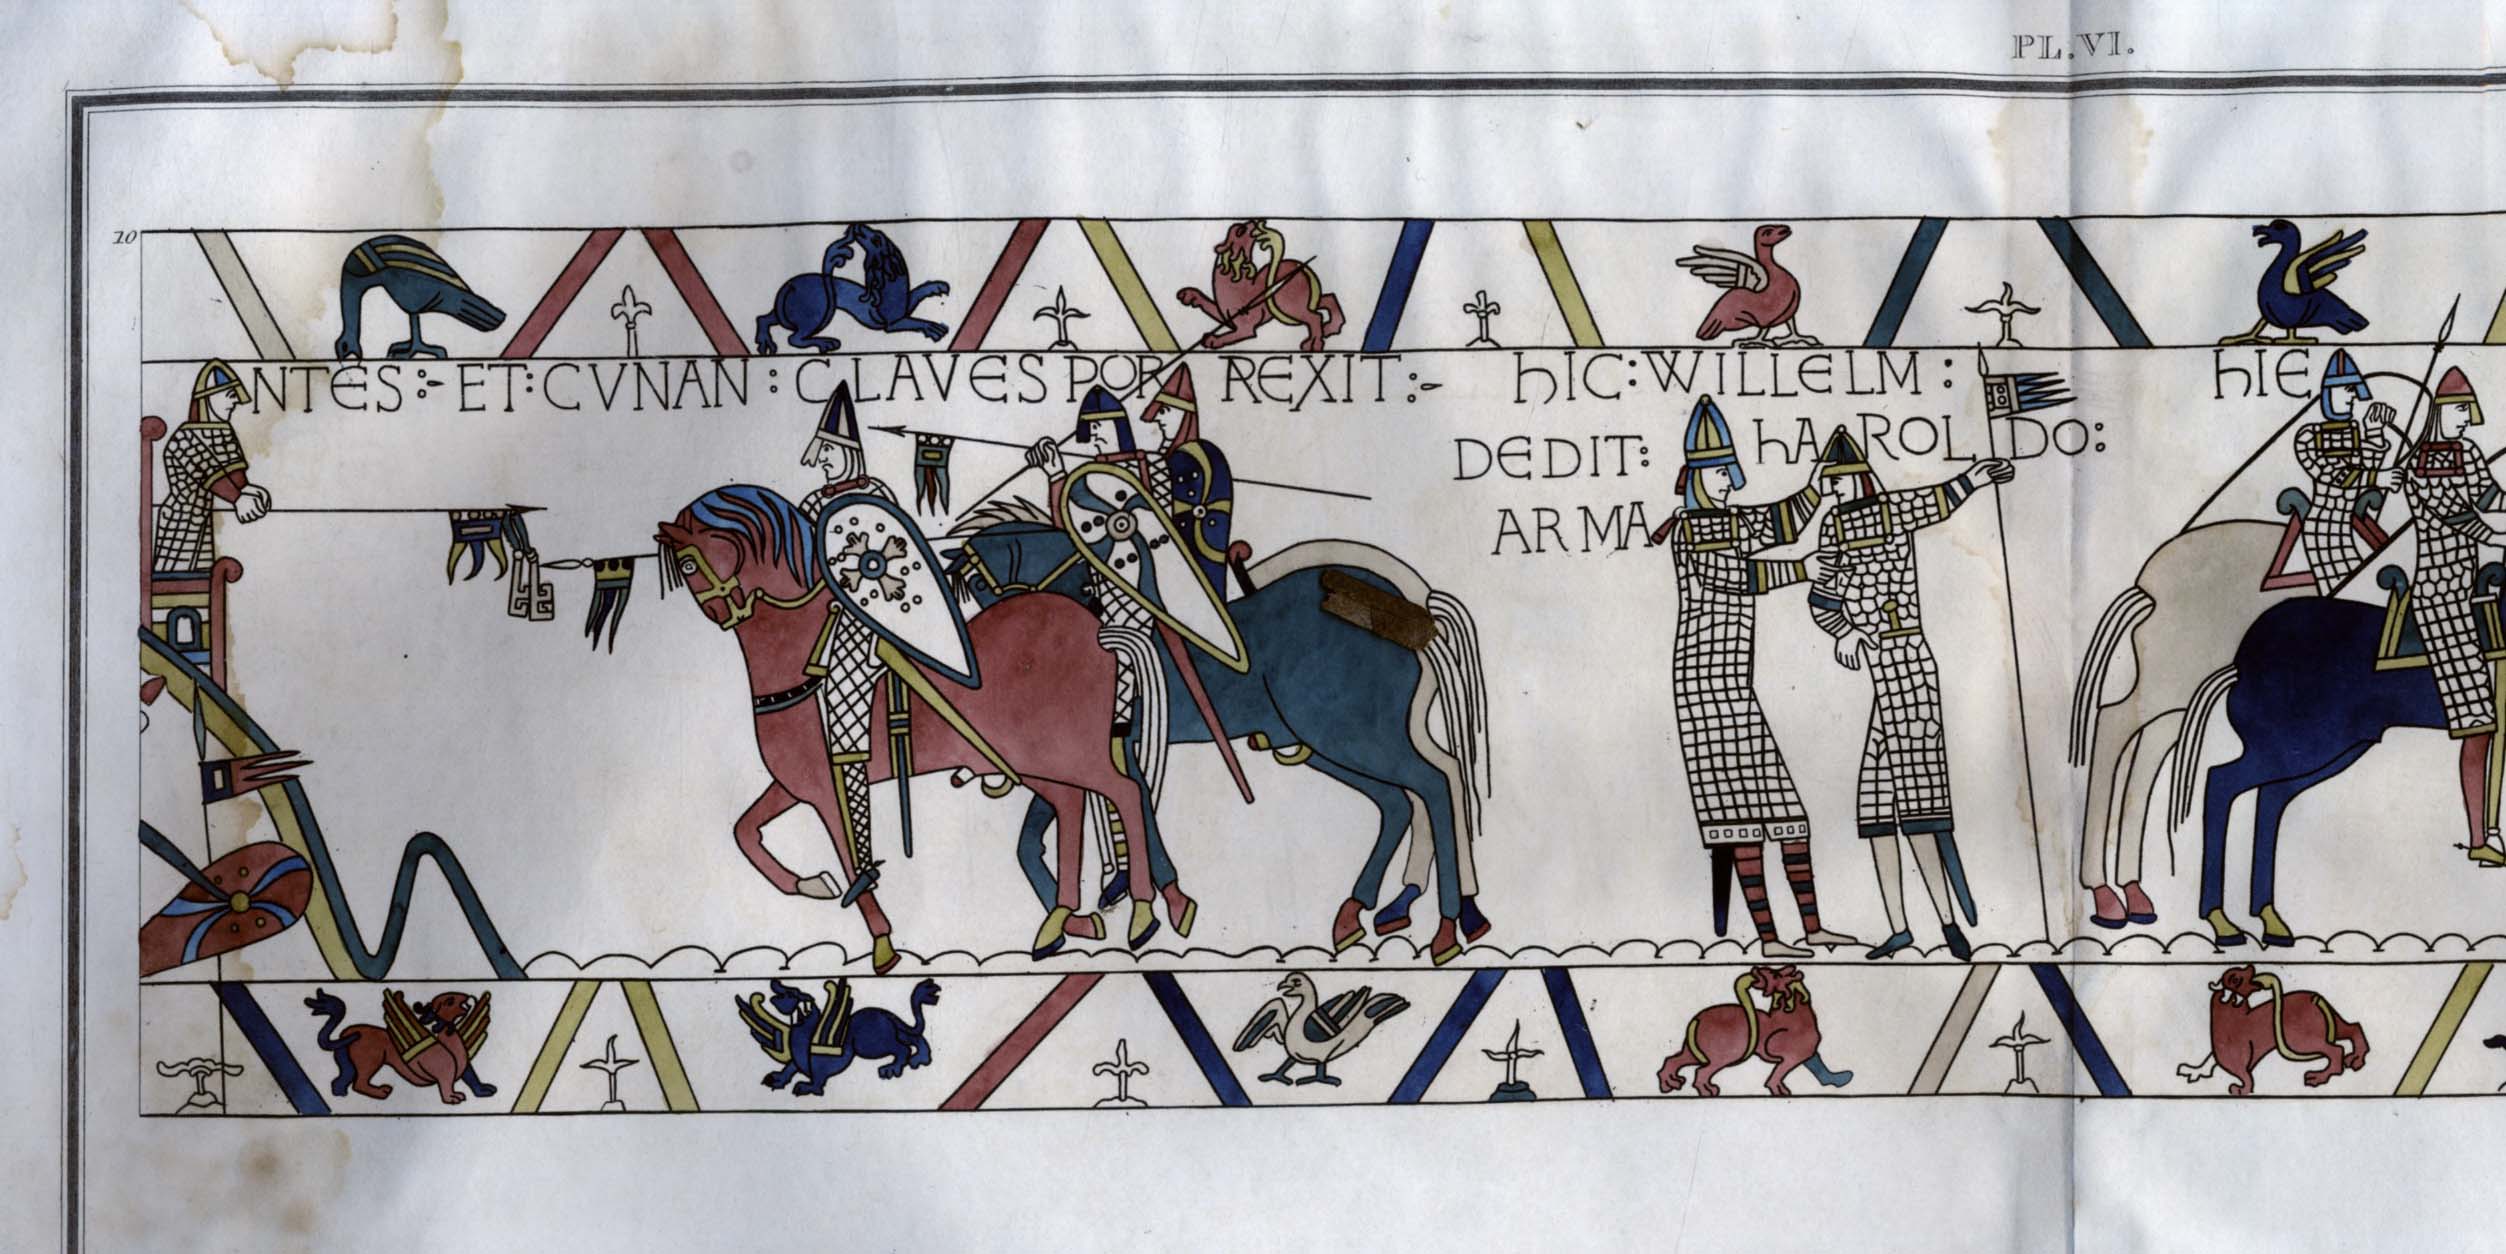 PL.VI.
10
NTES:- ET: CVNAN: CLAVES POR REXIT:-
hIC: WILLELM:
DEDIT: hAROLDO:
ARMA
hIE